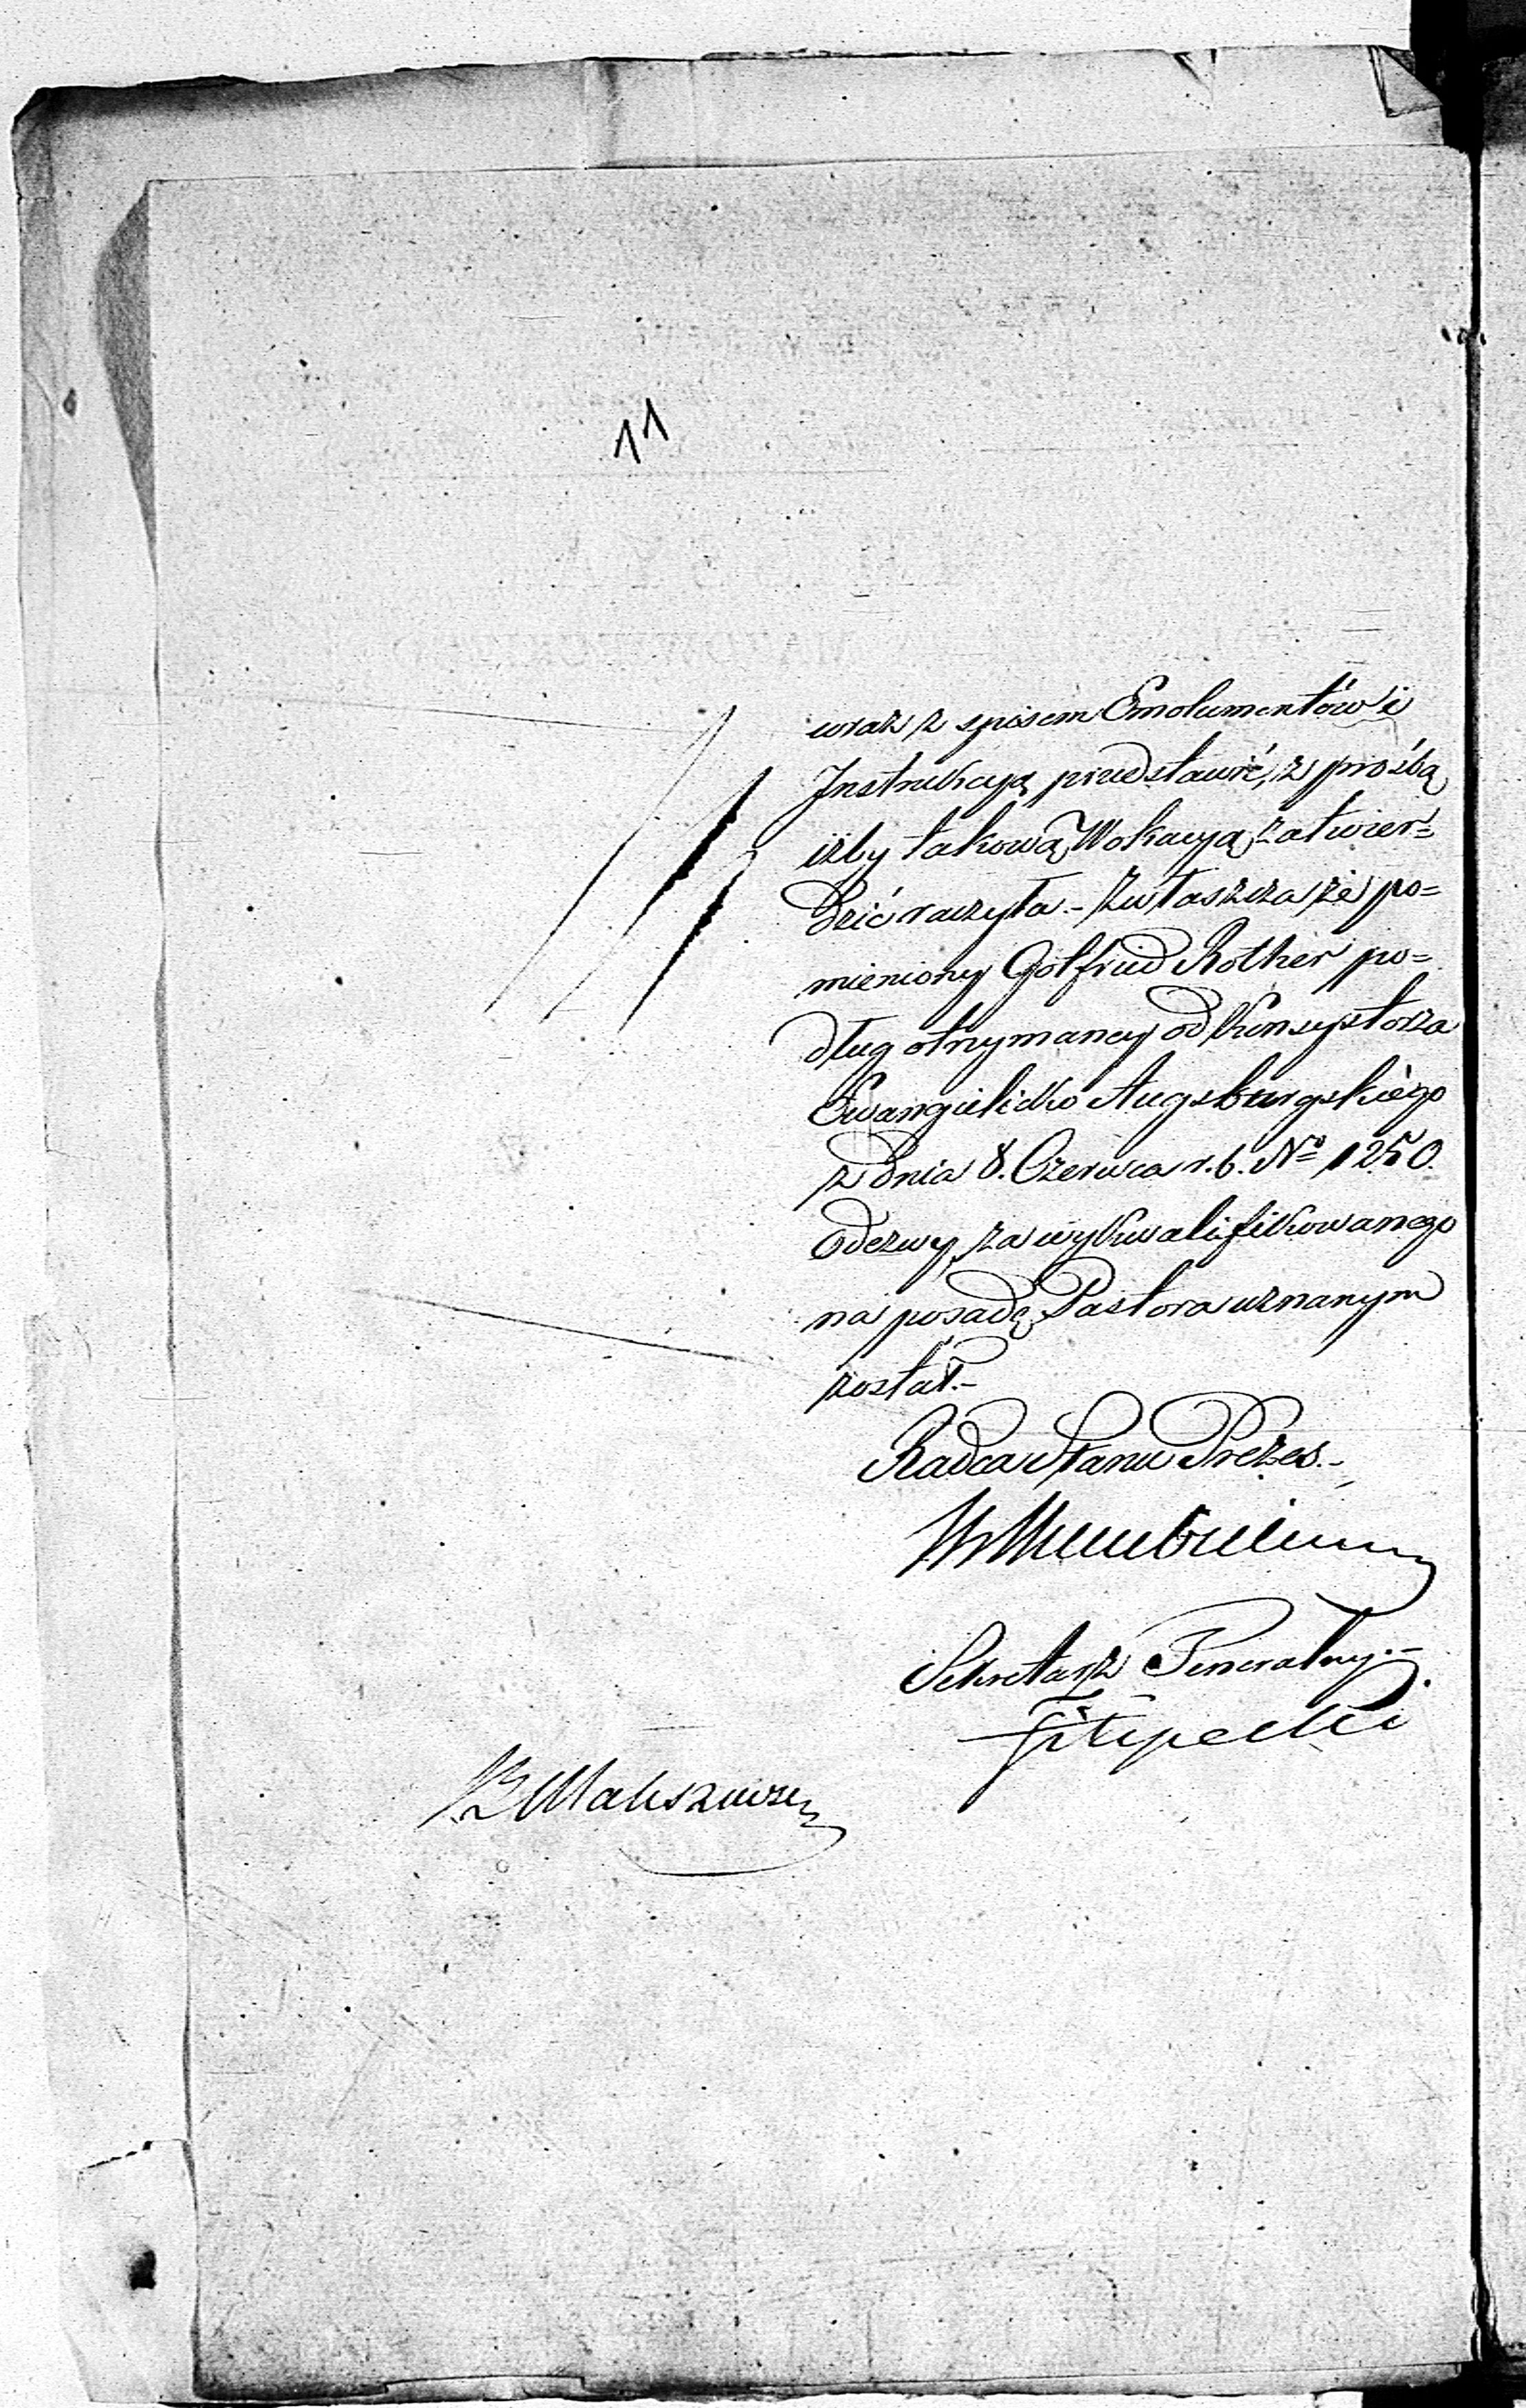 11
wraz z spisem Emolumentów i
Instrukcyą przedstawić, z prośbą
iżby takową Wokacyą zatwier=
dzić raczyła.- Zwłaszcza że po=
mieniony Gotfried Rother po=
dług otrzymaney od Konsystorza
Ewangielicko Augsburgskiégo
z dnia 8. Czerwca r. b. Nº 1250.
odezwy, za wykwalifikowanego
na posadę Pastora uznanym
został.-
Radca Stanu Prezes.-
Sekretarz Generalny.-
Filipecki